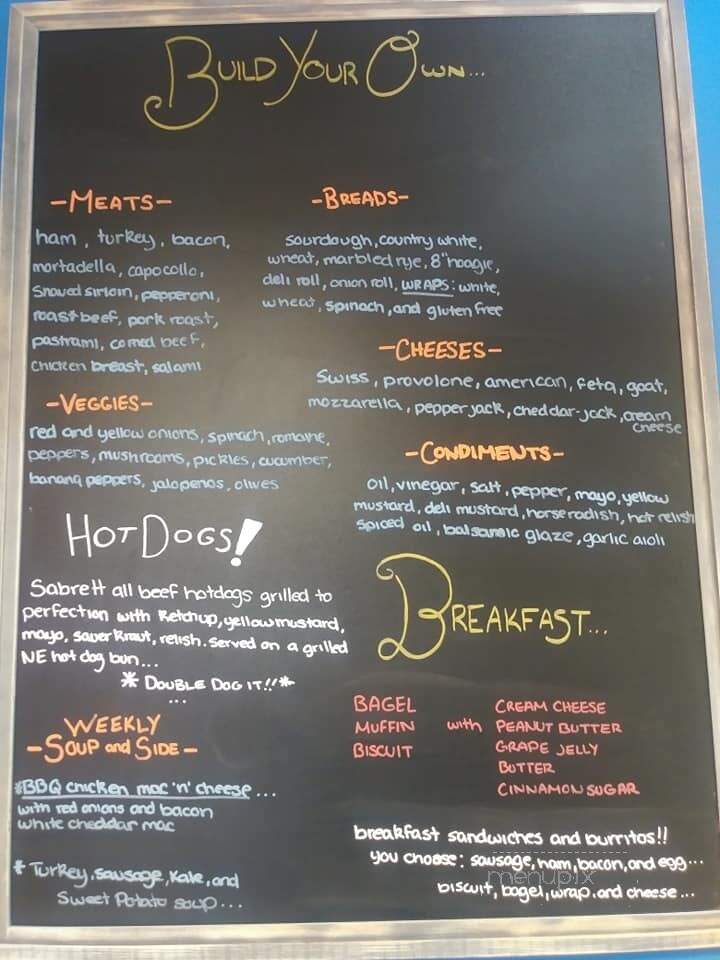 BUILD YOUR OWN...
-MEATS-
ham, turkey, bacon,
mortadella, capocollo,
Shaved sirloin, pepperoni,
roast beef, pork roast,
pastrami, corned beef,
chicken breast, salami
-BREADS-
sourdough, country white,
wheat, marbled rye, 8" hoagie,
deli roll, onion roll, WRAPS: white,
wheat, spinach, and gluten free
-CHEESES-
Swiss, provolone, american, feta, goat,
mozzarella, pepper jack, cheddar-jack, cream
cheese
-VEGGIES-
red and yellow onions, spinach, romaine,
peppers, mushrooms, pickles, cucumber,
banana peppers, jalapenos, olives
-CONDIMENTS-
oil, vinegar, salt, pepper, mayo, yellow
mustard, deli mustard, horseradish, hot relish
spiced oil, balsamic glaze, garlic aioli
HOT DOGS!
Sabrett all beef hotdogs grilled to
perfection with Ketchup, yellow mustard,
mayo, sauerkraut, relish. Served on a grilled
NE hot dog bun...
* DOUBLE DOG IT!! *
...
BREAKFAST...
BAGEL CREAM CHEESE
MUFFIN with PEANUT BUTTER
BISCUIT GRAPE JELLY
BUTTER
CINNAMON SUGAR
WEEKLY
-SOUP and SIDE-
*BBQ chicken mac 'n' cheese...
with red onions and bacon
white cheddar mac
* Turkey, sausage, Kale, and
Sweet Potato soup...
breakfast sandwiches and burritos!!
you choose: sausage, ham, bacon, and egg...
biscuit, bagel, wrap. and cheese...
menupix